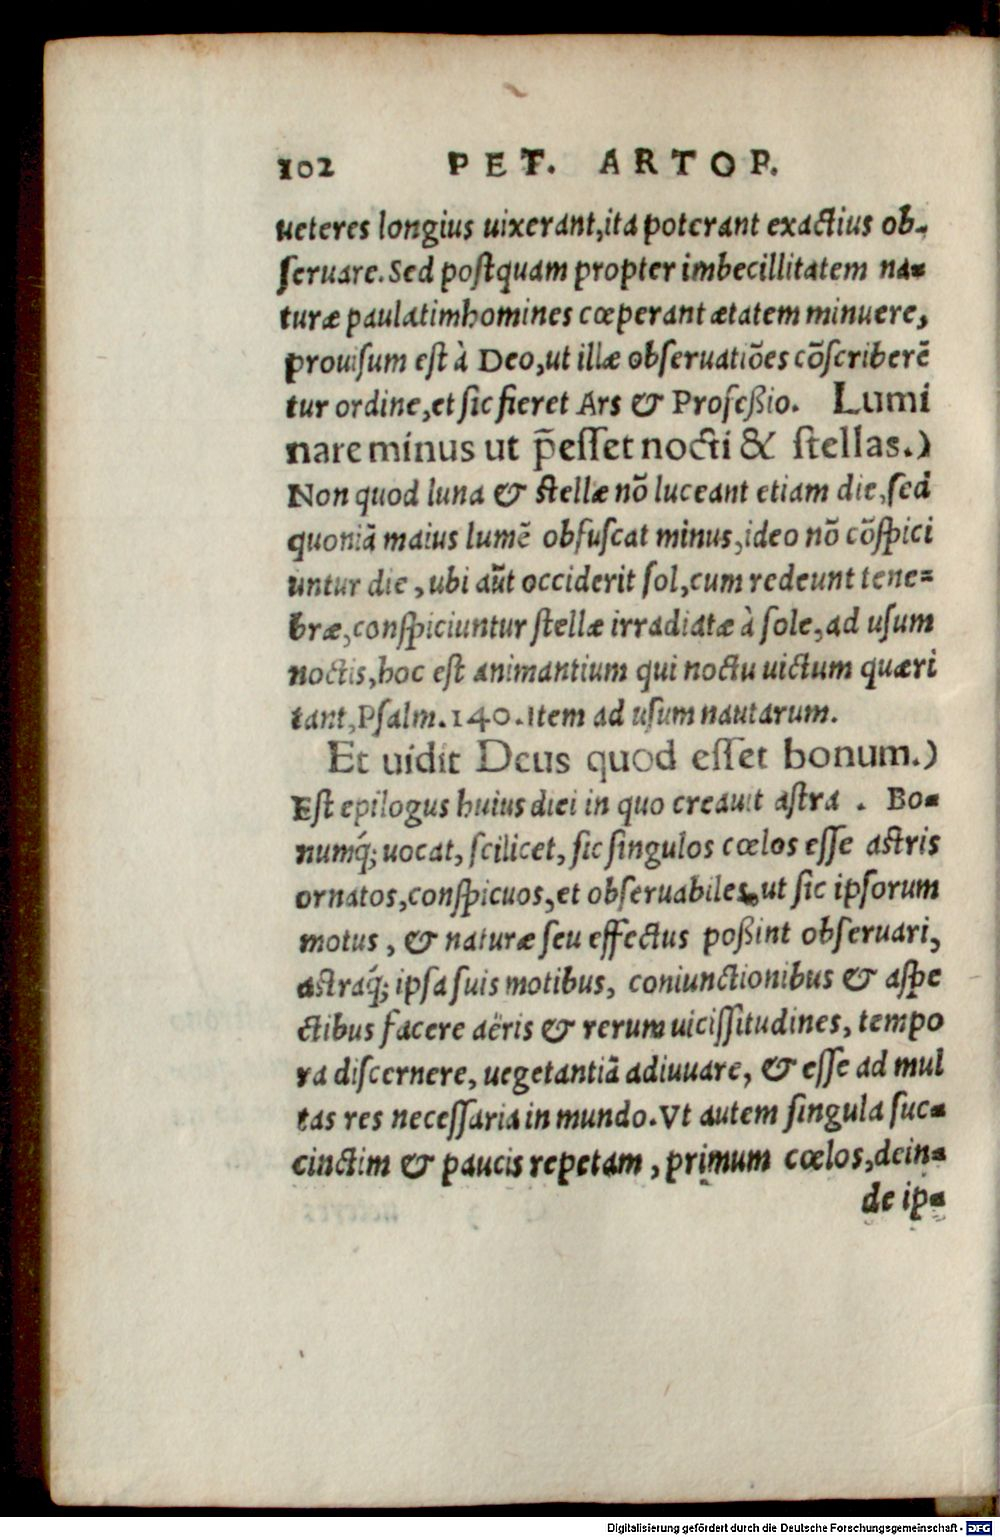 102 PET. ARTOP.
ueteres longius uixerant,ita poterant exactius ob-
ſeruare. Sed poſtquam propter imbecillitatem na-
turæ paulatimhomines cœperant ætatem minuere,
prouiſum eſt à Deo,ut illæ obſeruatiões cõſcriberẽ
tur ordine,et ſic fieret Ars & Profeßio. Lumi
nare minus ut p̃eſſet nocti & ſtellas.)
Non quod luna & ſtellæ nõ luceant etiam die,ſed
quoniã maius lumẽ obfuſcat minus,ideo nõ cõſpici
untur die , ubi aũt occiderit ſol,cum redeunt tene-
bræ,conſpiciuntur ſtellæ irradiatæ à ſole,ad uſum
noctis,hoc eſt animantium qui noctu uictum quæri
tant,Pſalm.140.Item ad uſum nautarum.
Et uidit Deus quod eſſet bonum.)
Eſt epilogus huius diei in quo creauit aſtra . Bo-
numq́; uocat, ſcilicet, ſic ſingulos cœlos eſſe aſtris
ornatos,conſpicuos,et obſeruabiles,ut ſic ipſorum
motus , & naturæ ſeu effectus poßint obſeruari,
aſtraq́; ipſa ſuis motibus, coniunctionibus & aſpe
ctibus facere aëris & rerum uiciſſitudines, tempo
ra diſcernere, uegetantiã adiuuare, & eſſe ad mul
tas res neceſſaria in mundo. Vt autem ſingula ſuc-
cinctim & paucis repetam , primum cœlos,dein-
de ip-
Digitalisierung gefördert durch die Deutsche Forschungsgemeinschaft - DFG